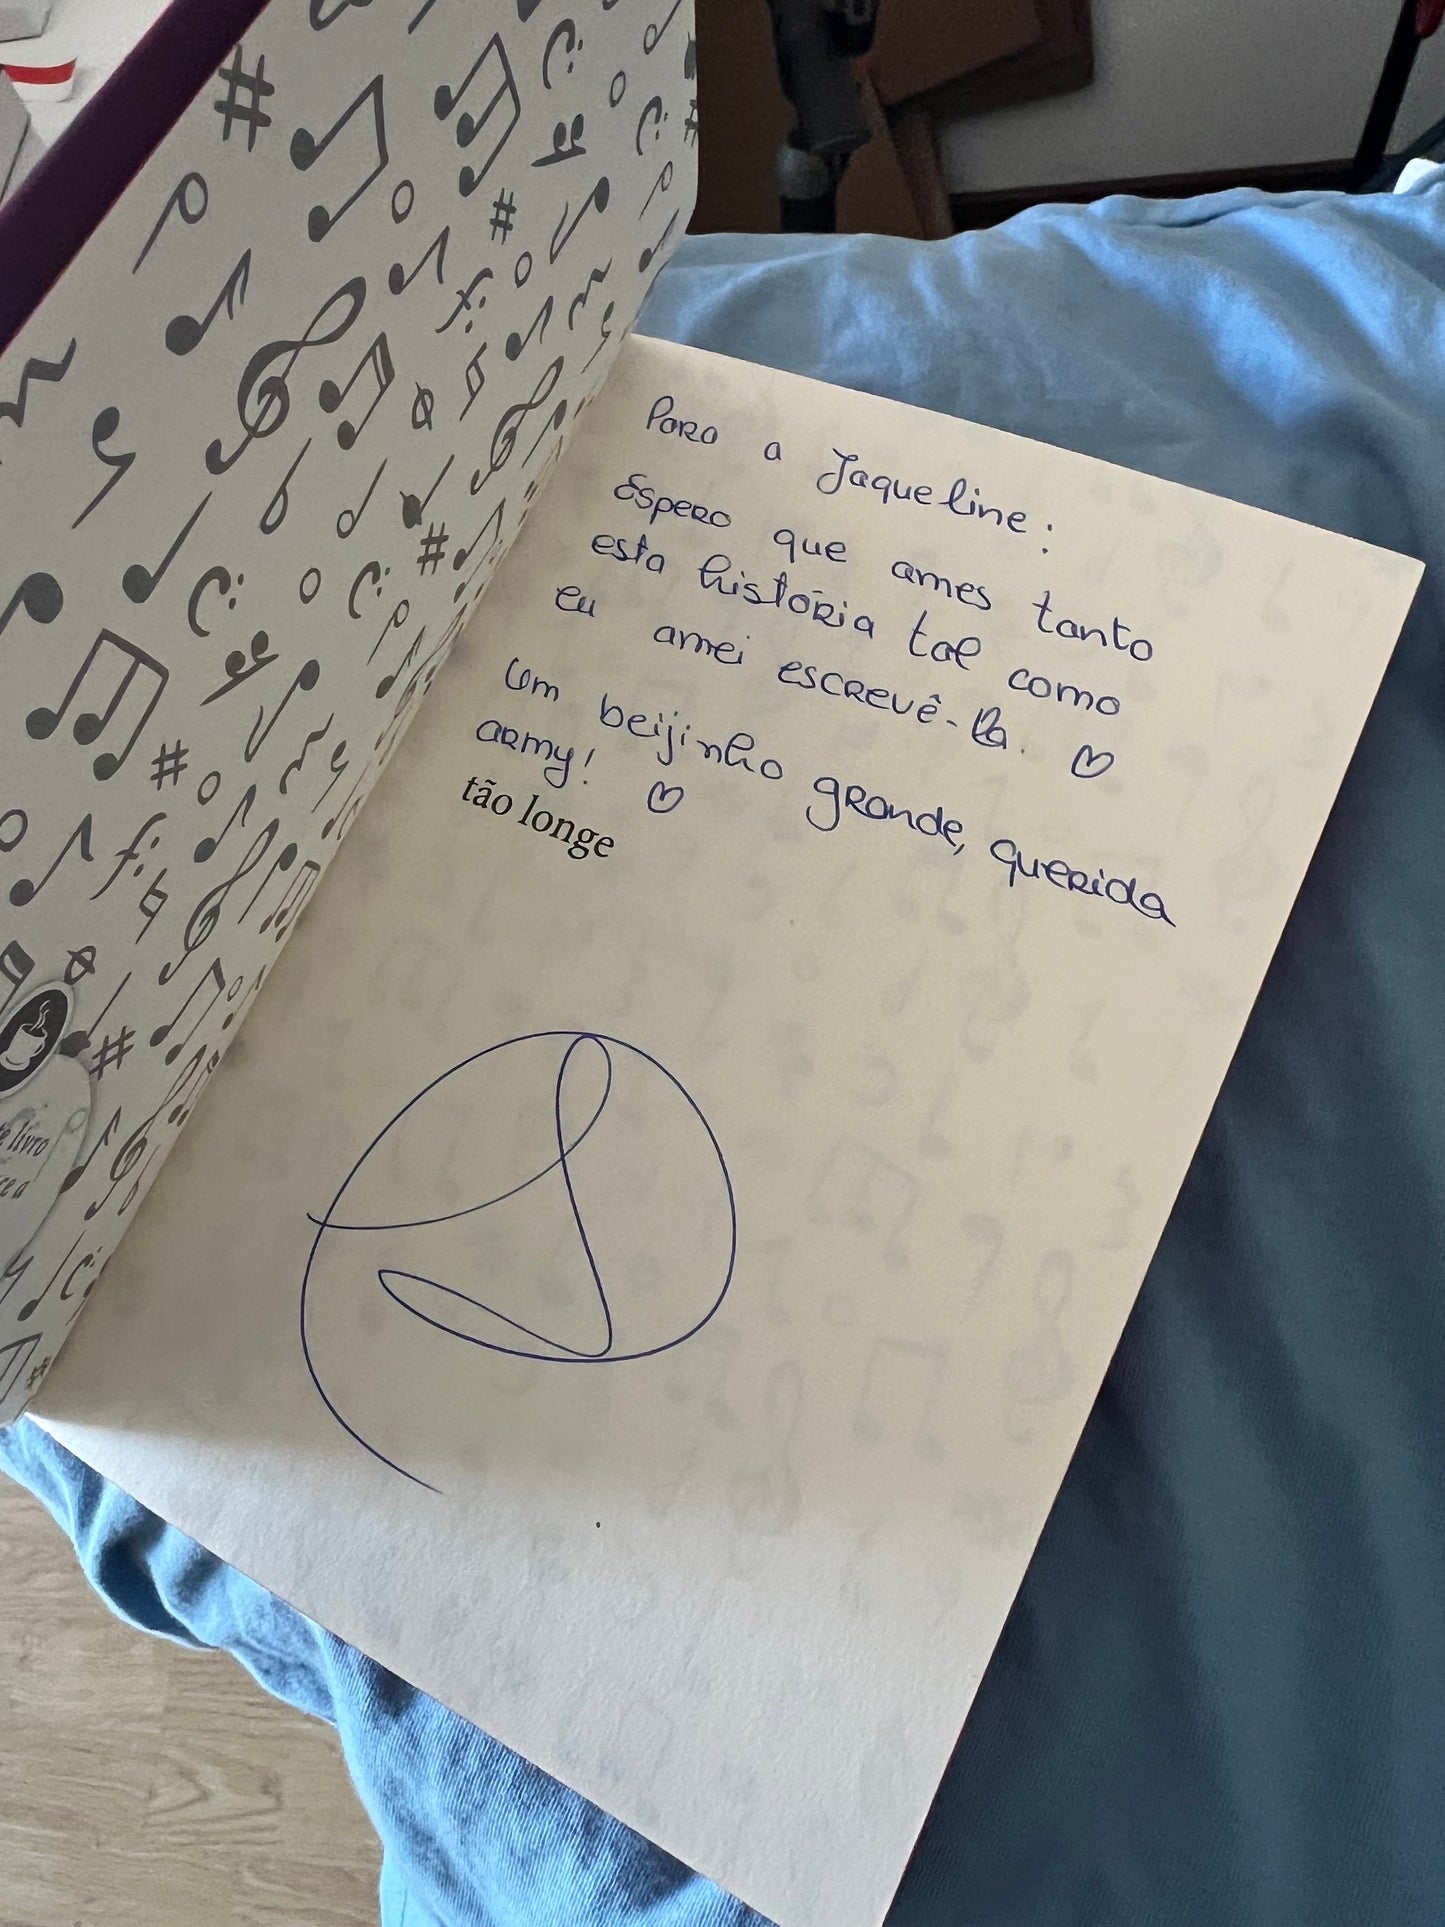 Para a Jaqueline:
Espero que ames tanto
esta história tal como
eu amei escrevê-la. ♡
Um beijinho grande, querida
army! ♡
tão longe
te livro
ce a